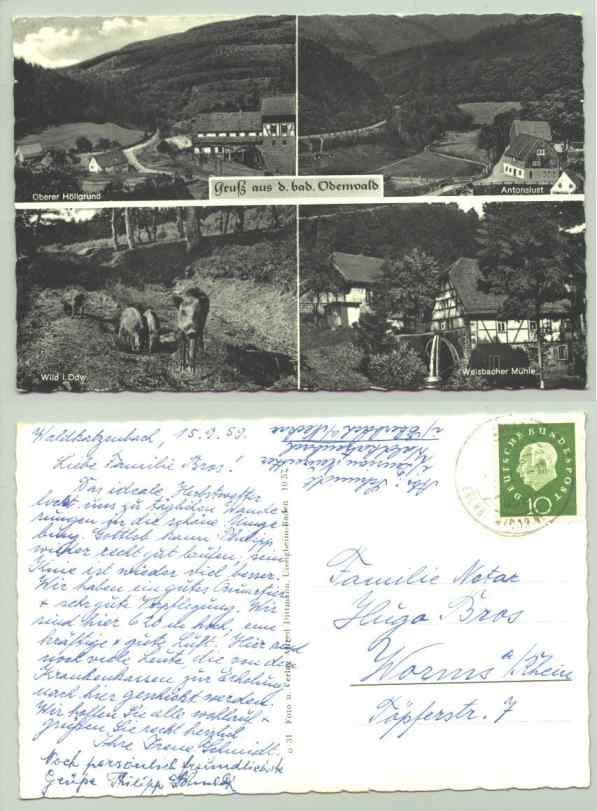 Oberer Höllgrund
Gruß aus d. bad. Odenwald
Antonslust
Wild i. Odw.
Weisbacher Mühle
Waldkatzenbach, 15.9.59.
Liebe Familie Bros!
Das ideale Herbstwetter
lockt uns zu täglichen Wande
rungen in die schöne Umge
bung. Gottlob kann Philipp
wieder recht gut laufen, sein
Knie ist wieder viel besser.
Wir haben ein gutes
+ sehr gute Verpflegung. Wir
sind hier 620 m hoch, eine
kräftige + gute Luft. Hier sind
noch viele Leute, die von den
Krankenkassen zur Erholung
nach hier geschickt werden.
Wir hoffen Sie alle wohlauf +
grüßen Sie recht herzlich
Ihre Irene Schmidt.
Noch persönlich freundlichste
Grüße Philipp Schmidt
Abs: Schmidt
Waldkatzenbach
ü/Eberbach a/Neckar
o 31 Foto u. Verlag Alfred Dittmann, Liedolsheim-Baden 10 57
DEUTSCHE BUNDESPOST
10
Familie Notar
Hugo Bros
Worms a/Rhein
Töpferstr. 7